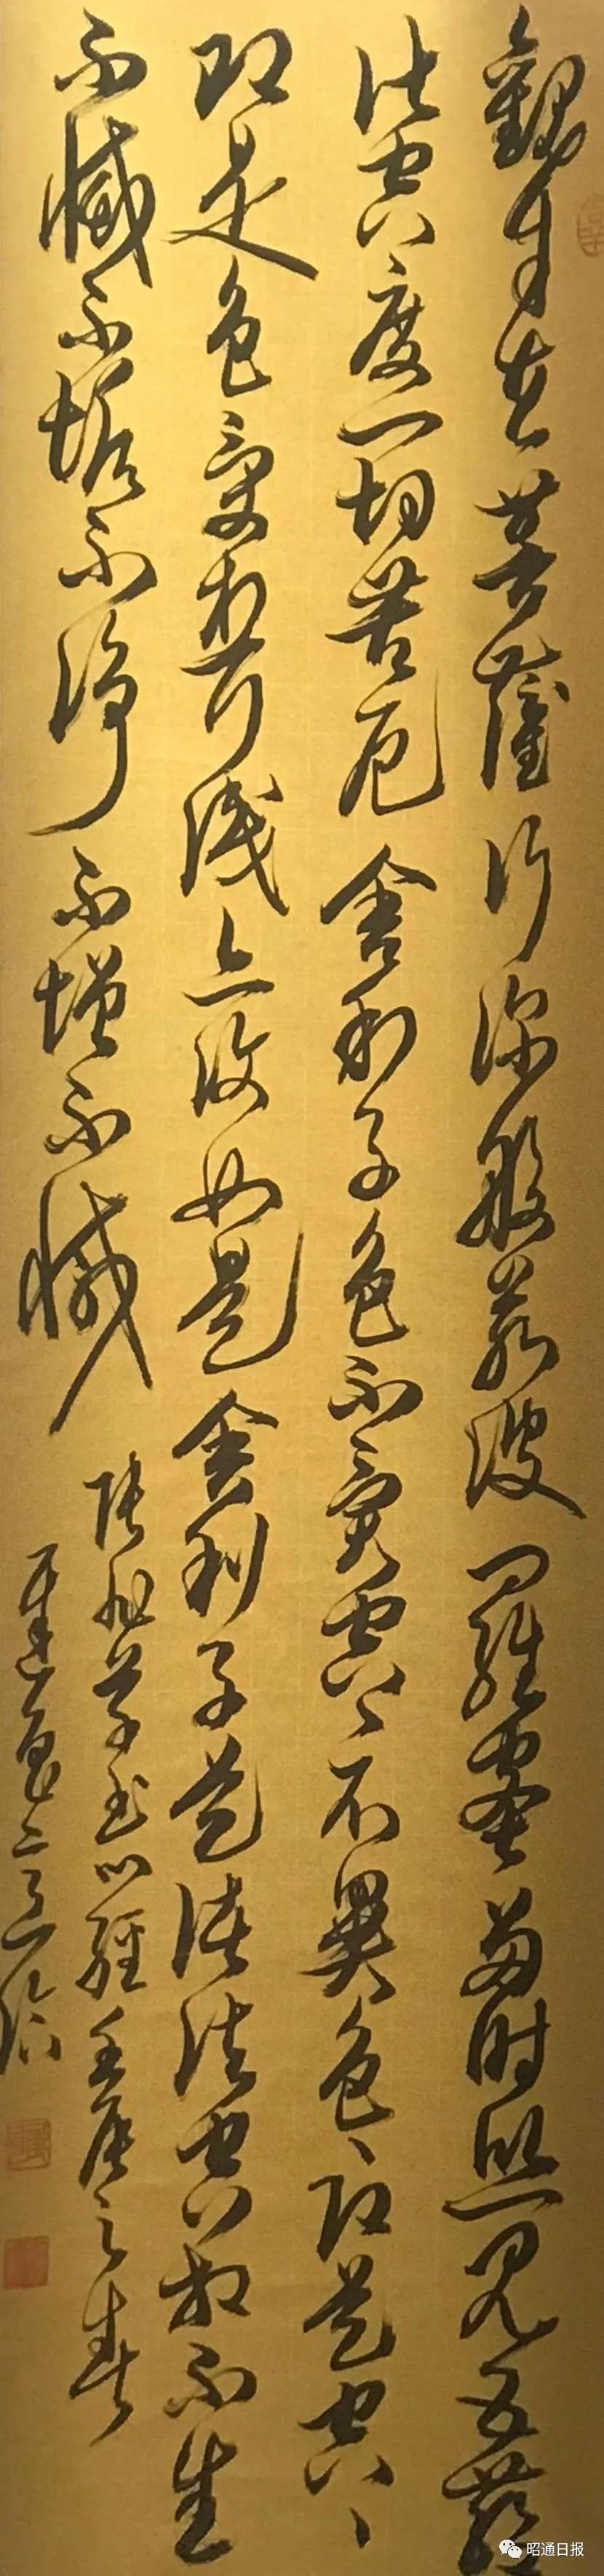 觀自在菩薩行深般若波羅蜜多时照見五蘊
皆空度一切苦厄舍利子色不異空、不異色、即是空、
即是色受想行識亦復如是舍利子是諸法空相不生
不滅不垢不淨不增不減
張旭草書心經壬辰之春
昭通日报